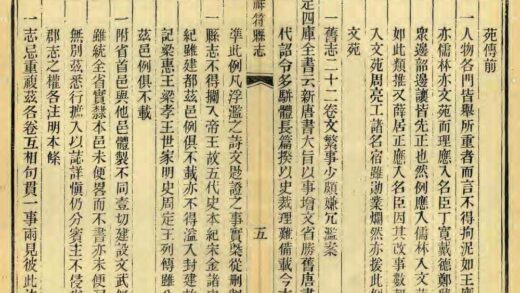 苑傳前
一人物各門皆舉所重者而言不得拘泥如王應
亦儒林亦文苑而理應入名臣丁寬戴德鄭
衆邊韶邊讓皆先正也然例應入儒林入文
如此類推又薛居正應入名臣因其改事數
入文苑周亮工諸名宿雖勳業爛然亦援此
文苑
一舊志二十二卷文繁事少頗嫌冗濫案
定四庫全書云新唐書大旨以事增文省勝舊唐書
代詔令多駢體長篇揆以史裁理難備載今
祥符縣志
五
準此例凡浮濫之詩文 證之事實槩從刪
一縣志不得攔入帝王故五代史本紀宋金諸
紀雖建都茲邑例俱不載亦不得濫入封建故
記梁惠王梁孝王世家明史周定王列傳雖
茲邑例俱不載
一附省首邑與他邑體製不同壹切建設文武
雖統全省實隸本邑未便畧而不書亦未便
無別茲悉行 入以誌詳愼仍分賓主不侵
郡志之權各注明本條
一志忌重複茲各卷互相句貫一事兩見彼此